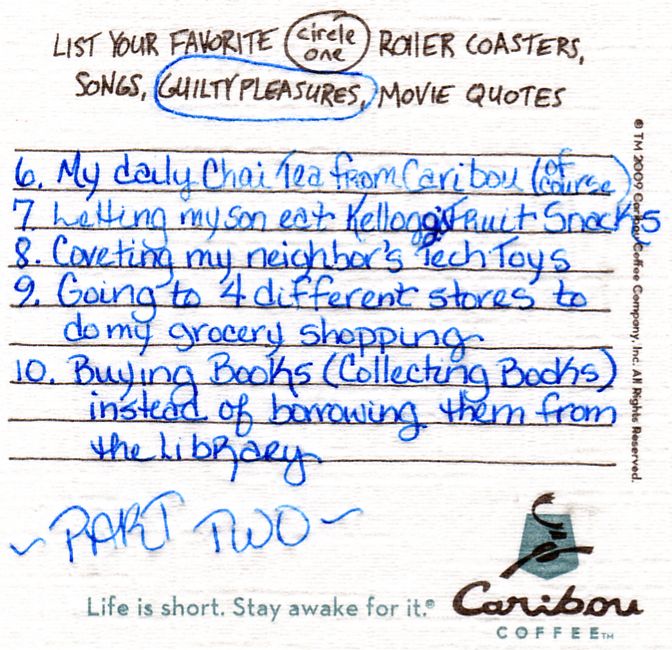 LIST YOUR FAVORITE circle one ROLLER COASTERS,
SONGS, GUILTY PLEASURES, MOVIE QUOTES
6. My daily Chai Tea from Caribou (of course)
7. Letting my son eat Kellogg's Fruit Snacks
8. Coveting my neighbor's Tech Toys
9. Going to 4 different stores to
do my grocery shopping
10. Buying Books (Collecting Books)
instead of borrowing them from
the Library
~PART TWO~
Life is short. Stay awake for it.®
Caribou
COFFEE™
® TM 2009 Caribou Coffee Company, Inc. All Rights Reserved.